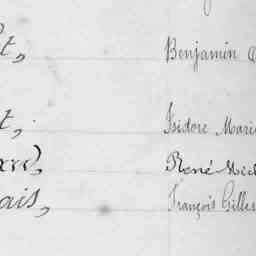 t, Benjamin
t, Isidore Marie
René Mich
ais, François Gilles